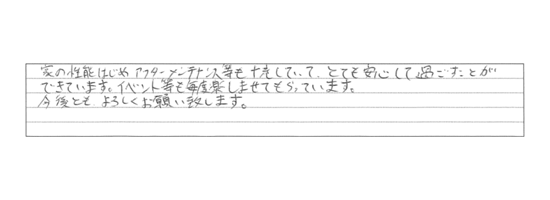 家の性能はじめアフターメンテナンス等も充実していて、とても安心して過ごすことが
できています。イベント等も毎度楽しませてもらっています。
今後ともよろしくお願い致します。